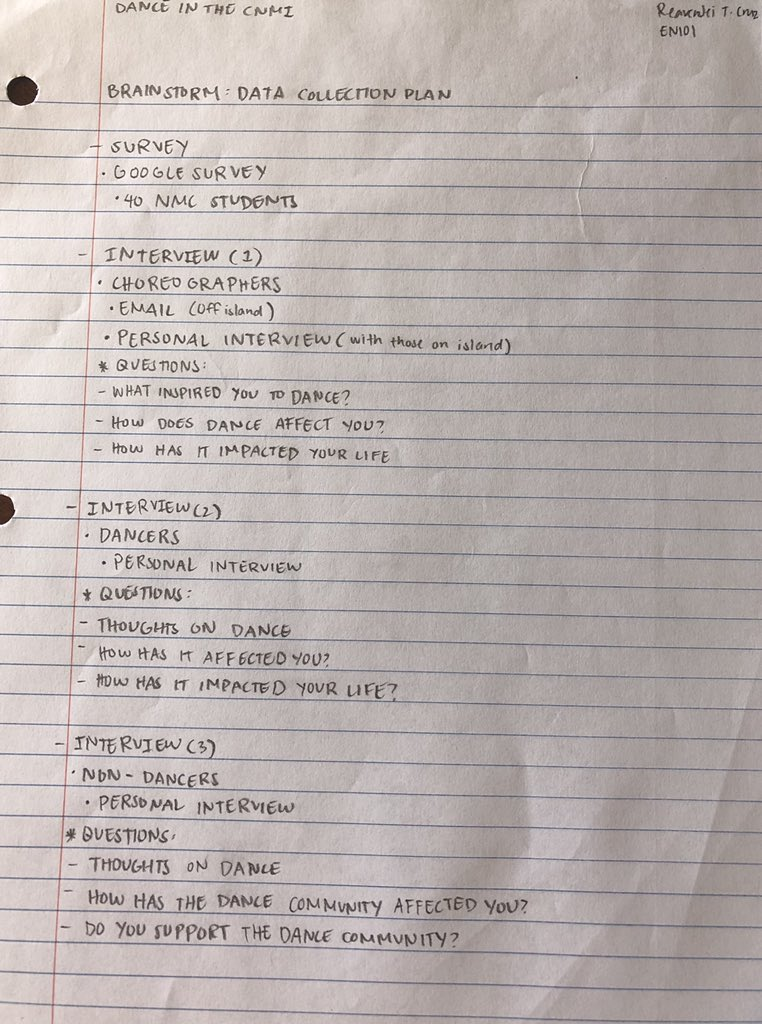 DANCE IN THE CNMI
T. Cruz
EN101
BRAINSTORM: DATA COLLECTION PLAN
- SURVEY
· GOOGLE SURVEY
· 40 NMC STUDENTS
- INTERVIEW (1)
· CHOREOGRAPHERS
· EMAIL (off island)
· PERSONAL INTERVIEW (with those on island)
* QUESTIONS:
- WHAT INSPIRED YOU TO DANCE?
- HOW DOES DANCE AFFECT YOU?
- HOW HAS IT IMPACTED YOUR LIFE
- INTERVIEW (2)
· DANCERS
· PERSONAL INTERVIEW
* QUESTIONS:
- THOUGHTS ON DANCE
- HOW HAS IT AFFECTED YOU?
- HOW HAS IT IMPACTED YOUR LIFE?
- INTERVIEW (3)
· NON-DANCERS
· PERSONAL INTERVIEW
* QUESTIONS:
- THOUGHTS ON DANCE
- HOW HAS THE DANCE COMMUNITY AFFECTED YOU?
- DO YOU SUPPORT THE DANCE COMMUNITY?